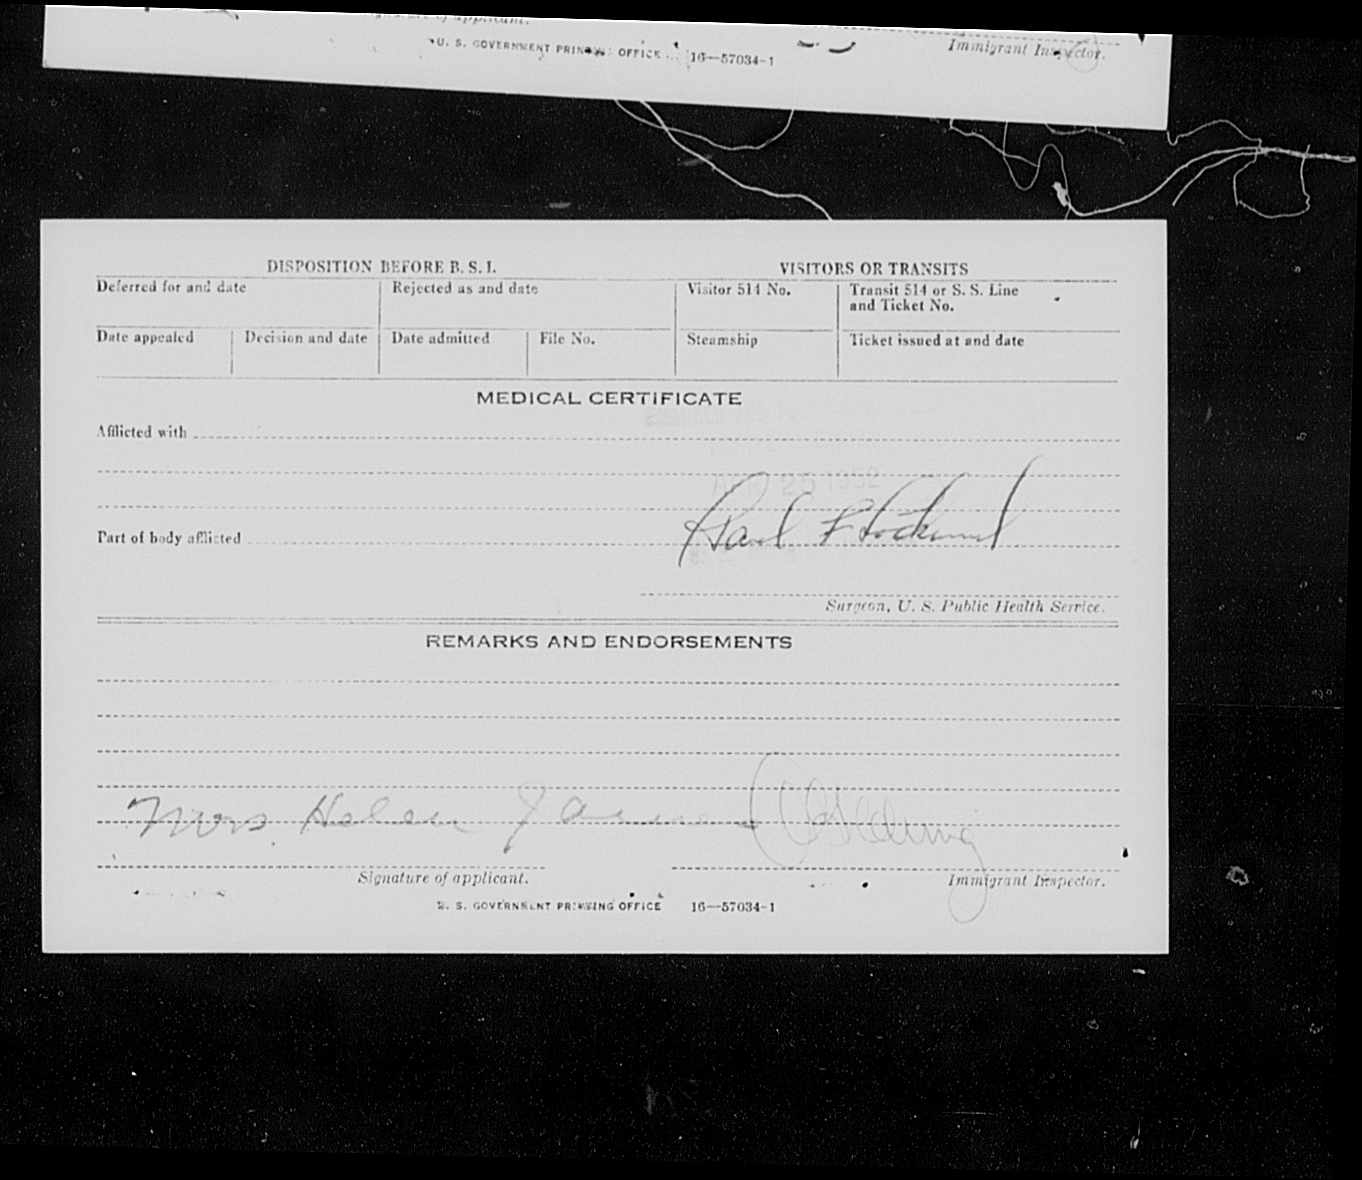 Signature of applicant.
U. S. GOVERNMENT PRINTING OFFICE 16—57034-1
Immigrant Inspector.
DISPOSITION BEFORE B. S. I.
VISITORS OR TRANSITS
Deferred for and date
Rejected as and date
Visitor 514 No.
Transit 514 or S. S. Line
and Ticket No.
Date appealed
Decision and date
Date admitted
File No.
Steamship
Ticket issued at and date
MEDICAL CERTIFICATE
Afflicted with
25 1952
Part of body afflicted
Surgeon, U. S. Public Health Service.
REMARKS AND ENDORSEMENTS
Mrs Helen
Signature of applicant.
Immigrant Inspector.
U. S. GOVERNMENT PRINTING OFFICE 16—57034-1